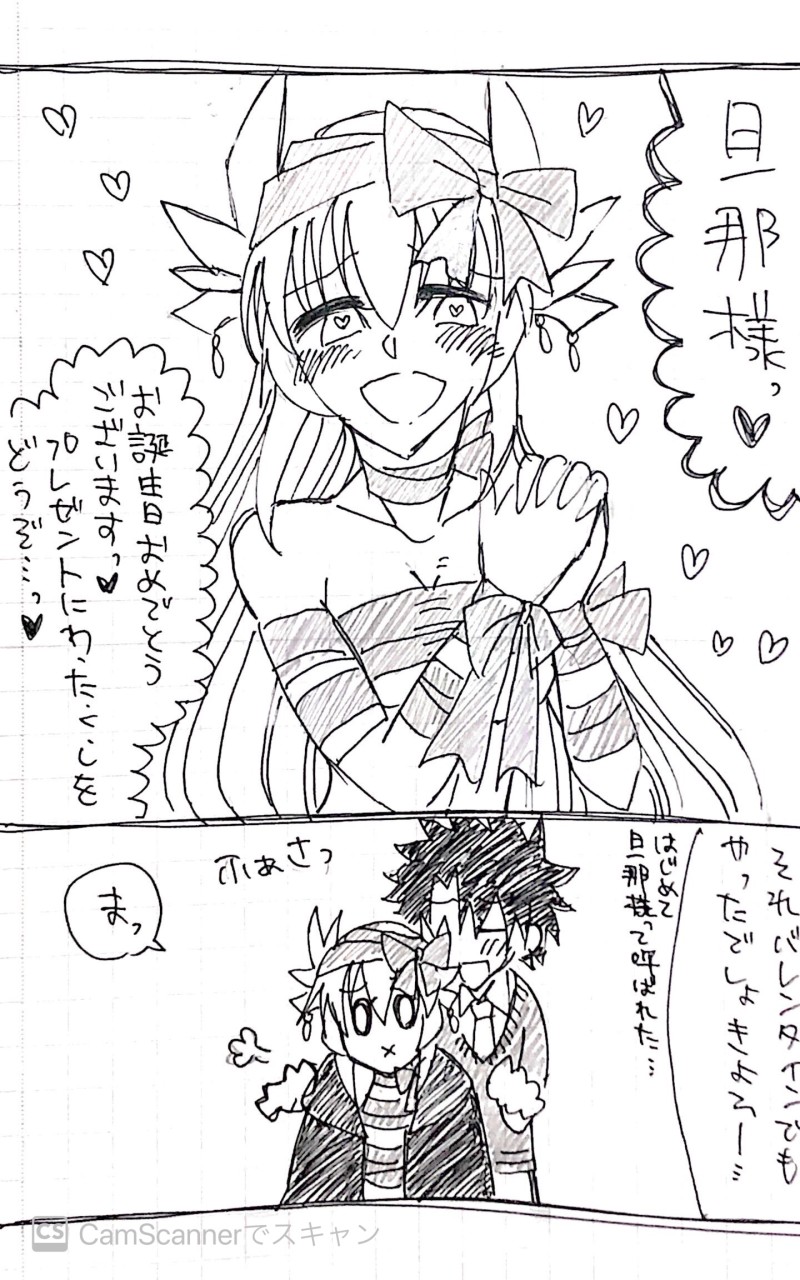 旦那様っ♥
お誕生日おめでとう
ございますっ♥
プレゼントにわたくしを
どうぞ…っ♥
それバレンタインでも
やったでしょきよひー…
はじめて
旦那様って呼ばれた…
ふぁさっ
まっ
CS CamScannerでスキャン